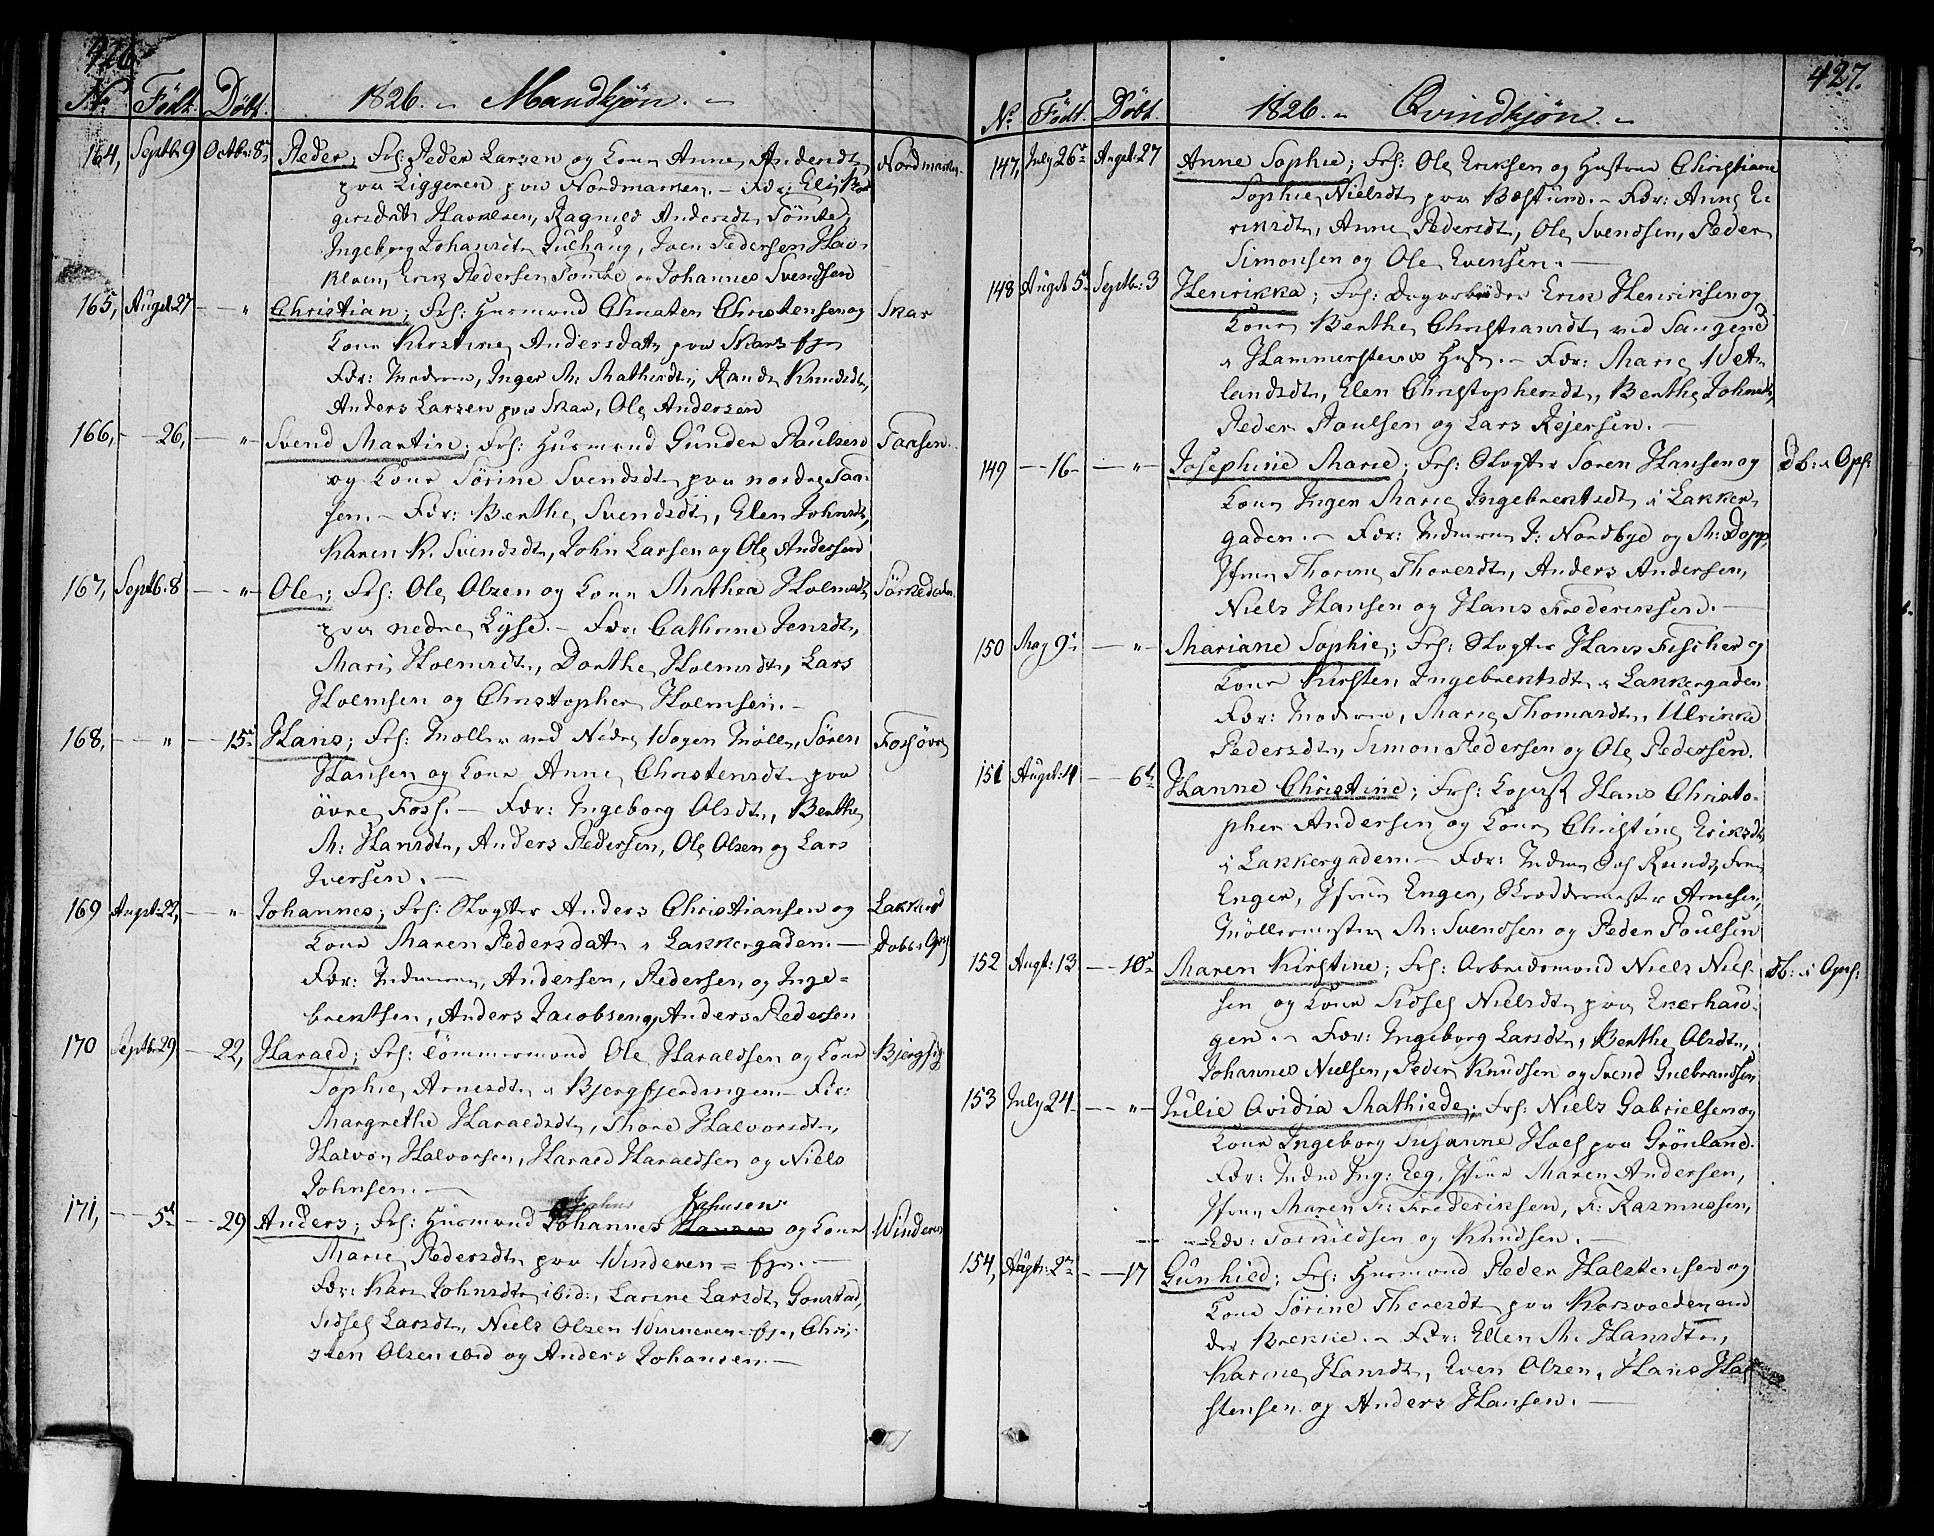 426.
No Födt. Döbt. 1826. - Mandkjön. -
164, Septbr 9 Octbr: 8de Peder; Frs: Peder Larsen og Kone Anne Andersdt, Nordmarken.
paa Liggeren paa Nordmarken. - Fær: Eli
gersdat Havelsen, Ragnild Andersdt, Tömte,
Ingeborg Johansdt, Iven Pedersen Hav-
Erik Pedersen Tömte og Johannes Svendsen
165, Augst 27 - - " Christian; Frs: Husmand Christen Christensen og Skar
Kone Kirstine Andersdat, paa Skar
Fær: Moderen, Inger M. Mathisdt, Randi Knudsdt,
Anders Larsen paa Skar, Ole Andersen
166, - - 26, - - " - Svend Martin; Frs: Husmand Gunder Paulsen Taasen.
og Kone Sörine Svendsdt, paa nordre Taa-
sen. - Fær: Berthe Svendsdt, Elen Johnsdt,
Karen K. Svendsdt, John Larsen og Ole Andersen
167, Septb. 8 - - " - Ole; Frs: Ole Olsen og Kone Mathea Holmsdt, Sörkedalen.
paa nedre Lyse. - Fær: Cathrine Jensdt,
Mari Holmsdt, Dorthe Holmsdt, Lars
Holmsen og Christopher Holmsen. -
168, - - " - - 15de Hans; Frs: Möller ved Nedre Vogen Mölle, Sören Foss övre
Hansen og Kone Anne Christensdt, paa
övre Foss. - Fær: Ingeborg Olsdt, Berthe
M: Hansdt, Anders Pedersen, Ole Olsen og Lars
Iversen. -
169 Augst 22, - - " Johannes; Frs: Vægter Anders Christiansen og Lakkerg
Kone Maren Pedersdat, i Lakkergaden. - Döbt i Ops
Fær: Andersen, Pedersen og Inge-
brektsen, Anders Jacobsen og Anders Pedersen
170 Septbr 29 - 22, Harald; Frs: Tömmermand Ole Haraldsen og Kone Bjergfj
Sophie Arnesdt, i Bjergfjerdingen. - Fær:
Margrethe Haraldsdt, Thore Halvorsdt,
Halvor Halvorsen, Harald Haraldsen og Niels
Johnsen. -
John Johnsen
171, - - 5te - 29 Anders; Frs: Husmand Johannes Hansen og Kone Vinderen
Marie Pedersdt, paa Vinderen -
Fær: Kari Johnsdt, ibid:, Larine Larsdt, Gonstad,
Sidsel Larsdt, Niels Olsen Vinneren, Chri-
sten Olsen ibid og Anders Johansen. -
427.
No Födt. Döbt. 1826. - Qvindkjön. -
147, July 26de Augst: 27 Anne Sophie; Frs: Ole Eriksen og Hustrue Christiane
Sophie Nielsdt, paa Bæstum. - Fær: Anne E-
riksdt, Anne Pedersdt, Ole Svendsen, Peder
Simonsen og Ole Evensen. -
148 Augst 5te Septbr: 3 Henrikka; Frs: Dagarbeider Erik Henriksen og
Kone Berthe Christiansdt, ved Saugene
i Hammersteens Huse. - Fær: Marie Vet-
landsdt, Elen Christophersdt, Berthe Johnsdt,
Peder Paulsen og Lars Rejersen. -
149 - - 16 - - " - Josephine Marie; Frs: Vægter Soren Hansen og Db: i Ops:
Kone Inger Marie Ingebrektsdt, i Lakker-
gaden. - Fær: J: Nordbye og M: Dopp,
Jfru Thorine Thoresdt, Anders Andersen,
Niels Hansen og Hans Frederiksen. -
150 May 9de - - " - Mariane Sophie; Frs: Vægter Hans Fischer og
Kone Kirsten Ingebrektsdt, i Lakkergaden
Fær: Moderen, Marie Thomasdt, Ulrikke
Pedersdt, Simon Pedersen og Ole Pedersen.
151 Augst: 4 - - 6te Hanne Christine; Frs: Kopist Hans Christo-
pher Andersen og Kone Christine Eriksdt,
i Lakkergaden. - Fær: Rund,
Enger, Jfru Enger, Skræddermester Arnesen,
Möllermester M: Svendsen og Peder Poulsen
152 Augt: 13 - - 10de Maren Kirstine; Frs: Arbeidsmand Niels Niel- db: i Ops:
sen og Kone Sidsel Nielsdt, paa Enerhau-
gen. - Fær: Ingeborg Larsdt, Berthe Olsdt,
Johannes Nielsen, Peder Knudsen og Svend Gulbrandsen
153 July 24 - - " - Julie Ovidia Mathiede; Frs: Niels Gabrielsen og
Kone Ingeborg Susanne Hoel paa Grönland.
Fær: Ing: Eeg, Jfru Maren Andersen,
Jfru Maren F: Frederiksen, F: Rasmussen,
Torkildsen og Knudsen. -
154, Augt: 2den - - 17 Gunhild; Frs: Husmand Peder Halstensen og
Kone Sörine Thoresdt, paa Korsvolden un
der Brekke. - Fær: Ellen M. Hansdt,
Karine Hansdt, Even Olsen, Hans Hal
stensen og Anders Hansen. -